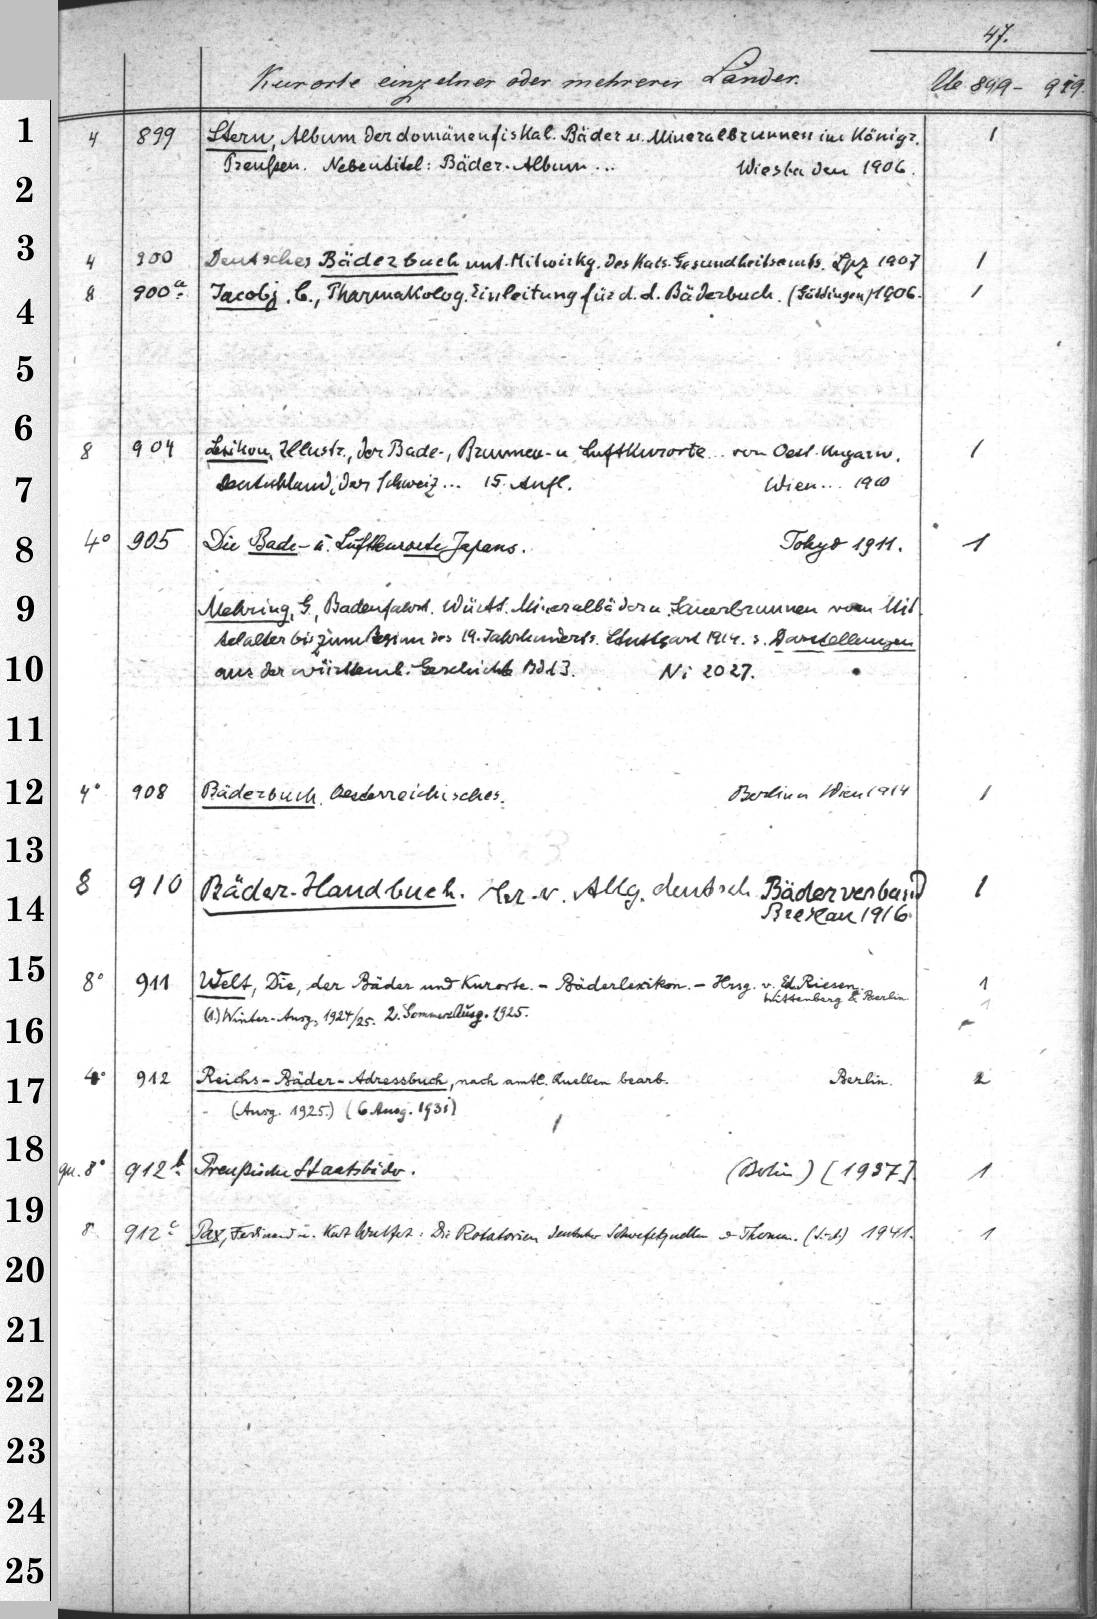 47.
Kurorte einzelner oder mehrerer Länder. Ue 899 - 919.
1
4 899 Stern, Album der domänenfiskal. Bäder u. Mineralbrunnen im Königr. 1
Preußen. Nebentitel: Bäder-Album ... Wiesbaden 1906.
2
3
4 900 Deutsches Bäderbuch unt. Mitwirkg. des Kais. Gesundheitsamts. Lpz 1907 1
8 900a. Jacobj, C., Pharmakolog. Einleitung für d. d. Bäderbuch. (Göttingen) 1906. 1
4
5
6
8 904 Lexikon, Illustr., der Bade-, Brunnen- u Luftkurorte ... von Oest.-Ungarn, 1
7
Deutschland, der Schweiz ... 15. Aufl. Wien ... 1910
8
4° 905 Die Bade- u. Luftkurorte Japans. Tokyo 1911. 1
9
Mehring, G., Badenfahrt. Württ. Mineralbäder u. Sauerbrunnen vom Mit
telalter bis zum Beginn des 19. Jahrhunderts. Stuttgart 1914. s. Darstellungen
10
aus der württemb. Geschichte Bd 13. Ni 2027.
11
12
4° 908 Bäderbuch, Oesterreichisches. Berlin u Wien 1914 1
13
8 910 Bäder-Handbuch. Her. v. Allg. deutsch. Bäderverband 1
14
Breslau 1916.
15
8° 911 Welt, Die, der Bäder und Kurorte. - Bäderlexikon. - Hrsg. v. Ed. Riesen. 1
Wittenberg & Berlin 1
(1.) Winter-Ausg. 1924/25. 2. Sommer Ausg. 1925.
16
17
4° 912 Reichs-Bäder-Adressbuch, nach amtl. Quellen bearb. Berlin. 2
(Ausg. 1925.) (6 Ausg. 1931)
18
qu. 8° 912b. Preußische Staatsbäder. (Berlin) [1937]. 1
19
8 912c Pax, Ferdinand u. Kurt Wulfert: Die Rotatorien deutscher Schwefelquellen u Thermen. 1941. 1
20
21
22
23
24
25